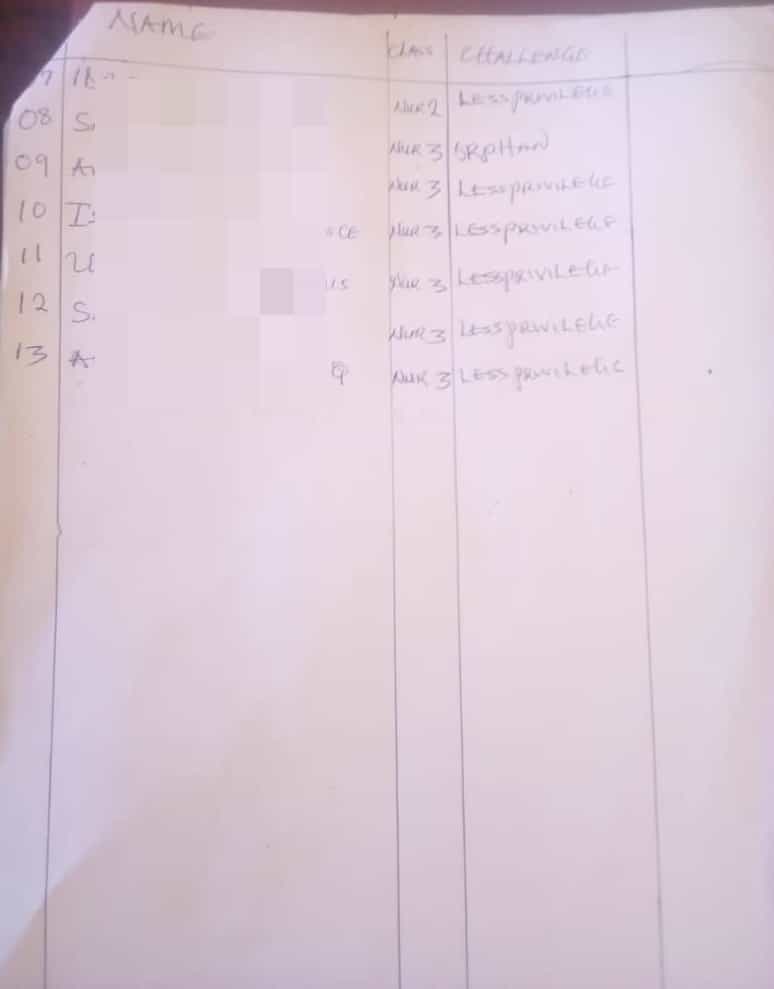 NAME CLASS CHALLENGE
7 NUR 2 LESSPRIVILEGE
08 S. NUR 3 ORPHAN
09 A NUR 3 LESSPRIVILEGE
10 I CE NUR 3 LESSPRIVILEGE
11 U IS NUR 3 LESSPRIVILEGE
12 S. NUR 3 LESSPRIVILEGE
13 A NUR 3 LESSPRIVILEGE